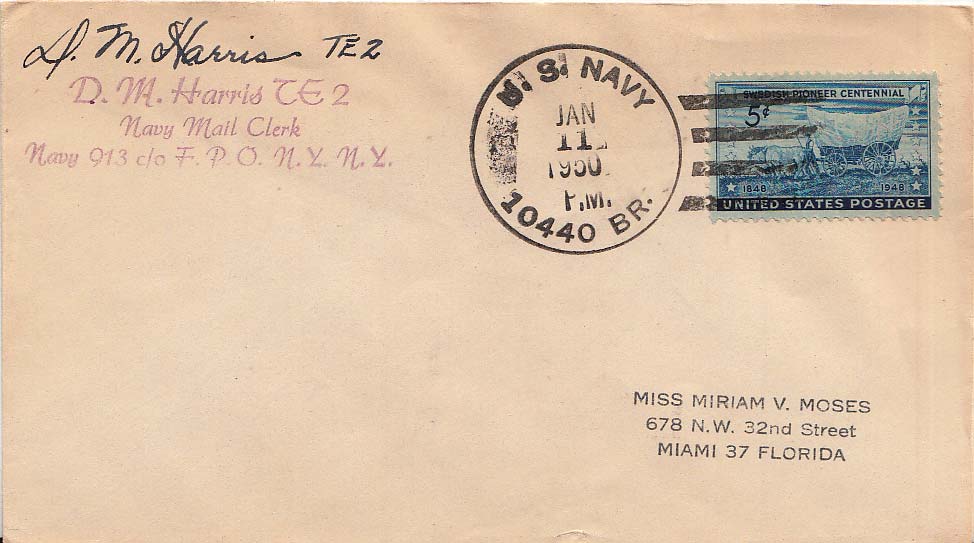 D. M. Harris TE2
D. M. Harris TE 2
Navy Mail Clerk
Navy 913 c/o F. P. O. N. Y. N. Y.
U. S. NAVY
JAN
11
1950
P.M.
10440 BR.
SWEDISH PIONEER CENTENNIAL
5¢
1848 1948
UNITED STATES POSTAGE
MISS MIRIAM V. MOSES
678 N.W. 32nd Street
MIAMI 37 FLORIDA